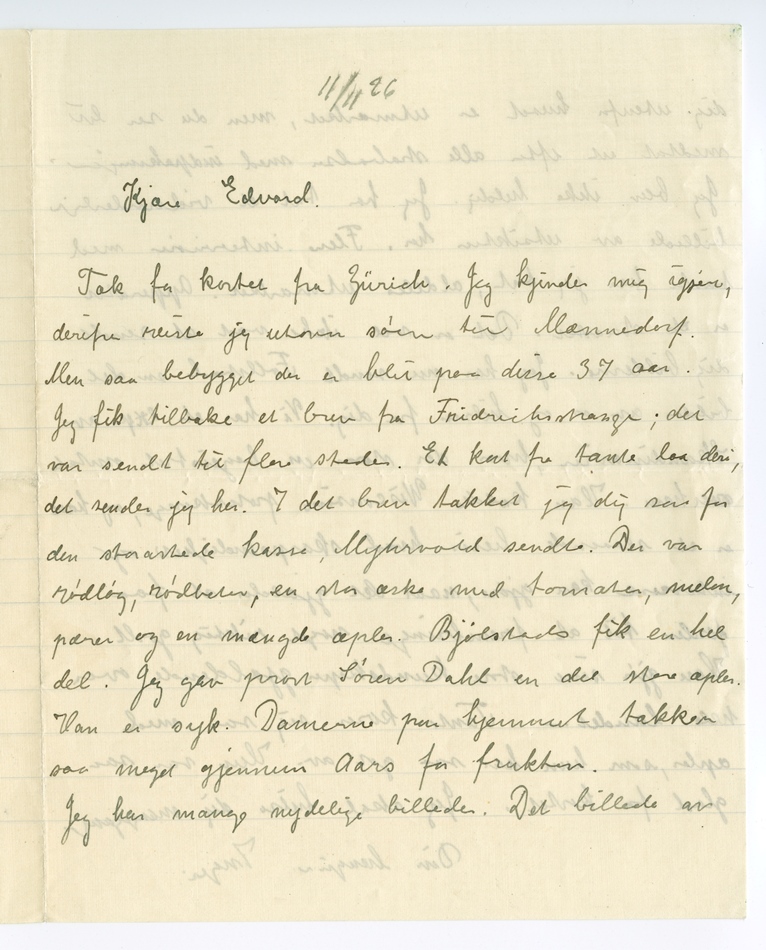 11/11 26
Kjære Edvard.
Tak for kortet fra Zürich. Jeg kjender mig igjen,
derifra reiste jeg utover søen til Mænnedorf.
Men saa bebygget der er blit paa disse 37 aar.
Jeg fik tilbake et brev fra Friedrichstrasse; det
var sendt til flere steder. Et kort fra tante laa deri,
det sender jeg her. I det brev takket jeg dig saa for
den storartede kasse, Myhrvold sendte. Der var
rødløg, rødbeter, en stor æske med tomater, melon,
pærer og en mængde æpler. Bjølstads fik en hel
del. Jeg gav prost Søren Dahl en del store æpler.
Han er syk. Damerne paa hjemmet takker
saa meget gjennem Aars for frukten.
Jeg har mange nydelige billeder. Det billede av